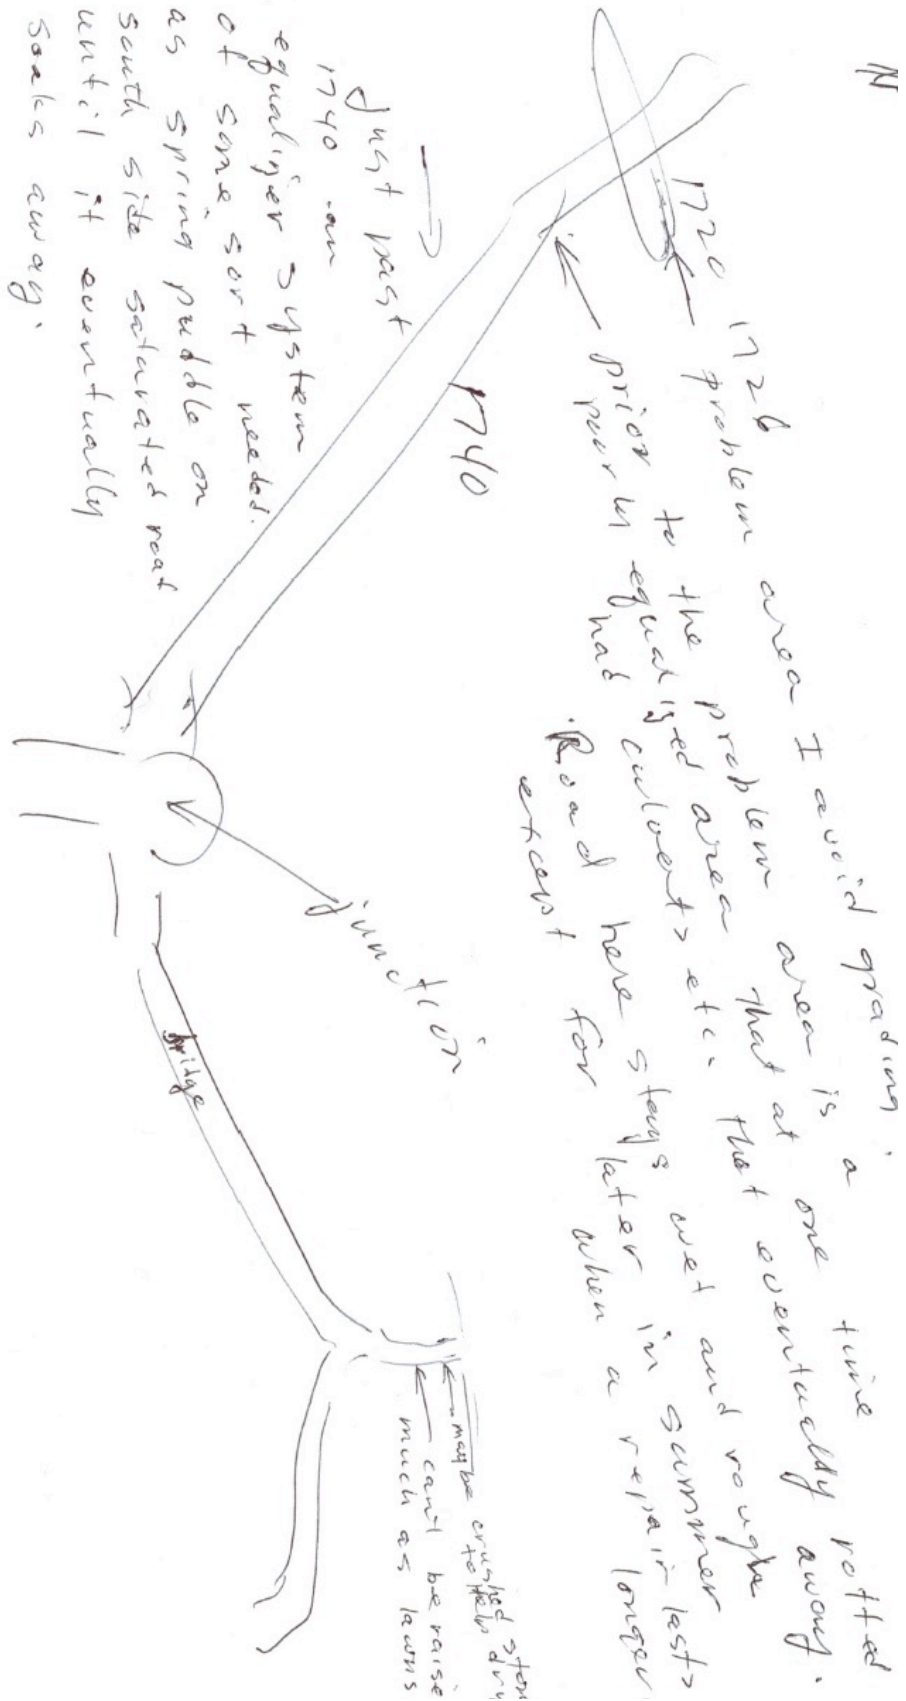 N
1726
1720 problem area I avoid grading.
prior to the problem area is a time rotted
poorly equalized area that at one eventually away.
had culverts etc. that
Road here stays wet and rough
except for later in summer
when a repair lasts
longer
1740
Just past
1740 an
equalizer system
of some sort needed.
as spring puddle on
south side saturated road
until it eventually
soaks away.
junction
bridge
maybe crushed ston
to help dry
can't be raise
much as lawns